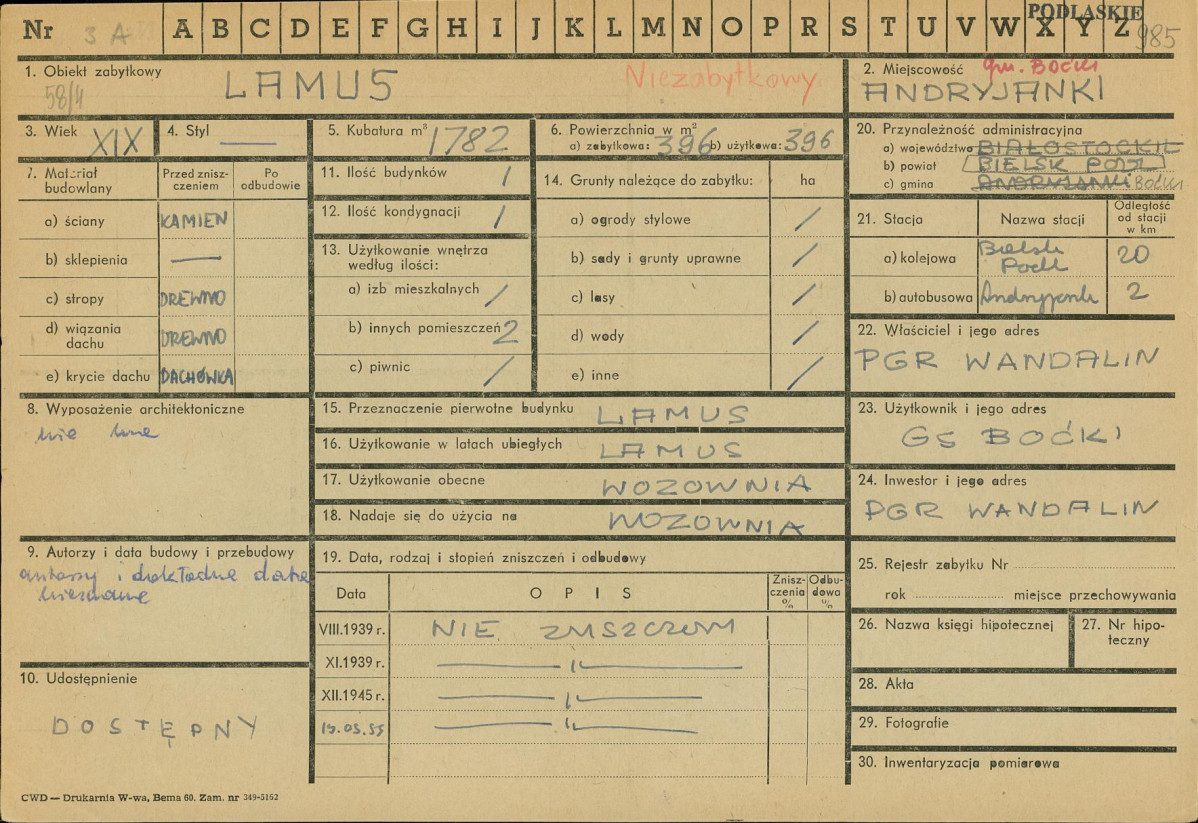 Nr 3 A A B C D E F G H I J K L M N O P R S T U V W X Y Z PODLASKIE 985
1. Obiekt zabytkowy LAMUS Niezabytkowy.
58/4
2. Miejscowość gm. BOĆKI
ANDRYJANKI
3. Wiek XIX
4. Styl —
5. Kubatura m³ 1782
6. Powierzchnia w m²
a) zabytkowa: 396 b) użytkowa: 396
7. Materiał budowlany
Przed zniszczeniem
Po odbudowie
a) ściany KAMIEŃ
b) sklepienia —
c) stropy DREWNO
d) wiązania dachu DREWNO
e) krycie dachu DACHÓWKA
8. Wyposażenie architektoniczne
nie ma
9. Autorzy i data budowy i przebudowy
autorzy i dokładna data
nieznane
10. Udostępnienie
DOSTĘPNY
11. Ilość budynków 1
12. Ilość kondygnacji 1
13. Użytkowanie wnętrza
według ilości:
a) izb mieszkalnych /
b) innych pomieszczeń 2
c) piwnic /
14. Grunty należące do zabytku: ha
a) ogrody stylowe /
b) sady i grunty uprawne /
c) lasy /
d) wody /
e) inne /
15. Przeznaczenie pierwotne budynku LAMUS
16. Użytkowanie w latach ubiegłych LAMUS
17. Użytkowanie obecne WOZOWNIA
18. Nadaje się do użycia na WOZOWNIA
19. Data, rodzaj i stopień zniszczeń i odbudowy
Data
OPIS
Zniszczenia %
Odbudowa %
VIII.1939 r. NIE ZNISZCZONY
XI.1939 r. — 〃 —
XII.1945 r. — 〃 —
19.03.55 — 〃 —
20. Przynależność administracyjna
a) województwo BIAŁOSTOCKIE
b) powiat BIELSK PODL
c) gmina ANDRYJANKI BOĆKI
21. Stacja
Nazwa stacji
Odległość od stacji w km
a) kolejowa Bielsk Podl 20
b) autobusowa Andryjank 2
22. Właściciel i jego adres
PGR WANDALIN
23. Użytkownik i jego adres
GS BOĆKI
24. Inwestor i jego adres
PGR WANDALIN
25. Rejestr zabytku Nr
rok miejsce przechowywania
26. Nazwa księgi hipotecznej
27. Nr hipoteczny
28. Akta
29. Fotografie
30. Inwentaryzacja pomiarowa
CWD — Drukarnia W-wa, Bema 60. Zam. nr 349-5162